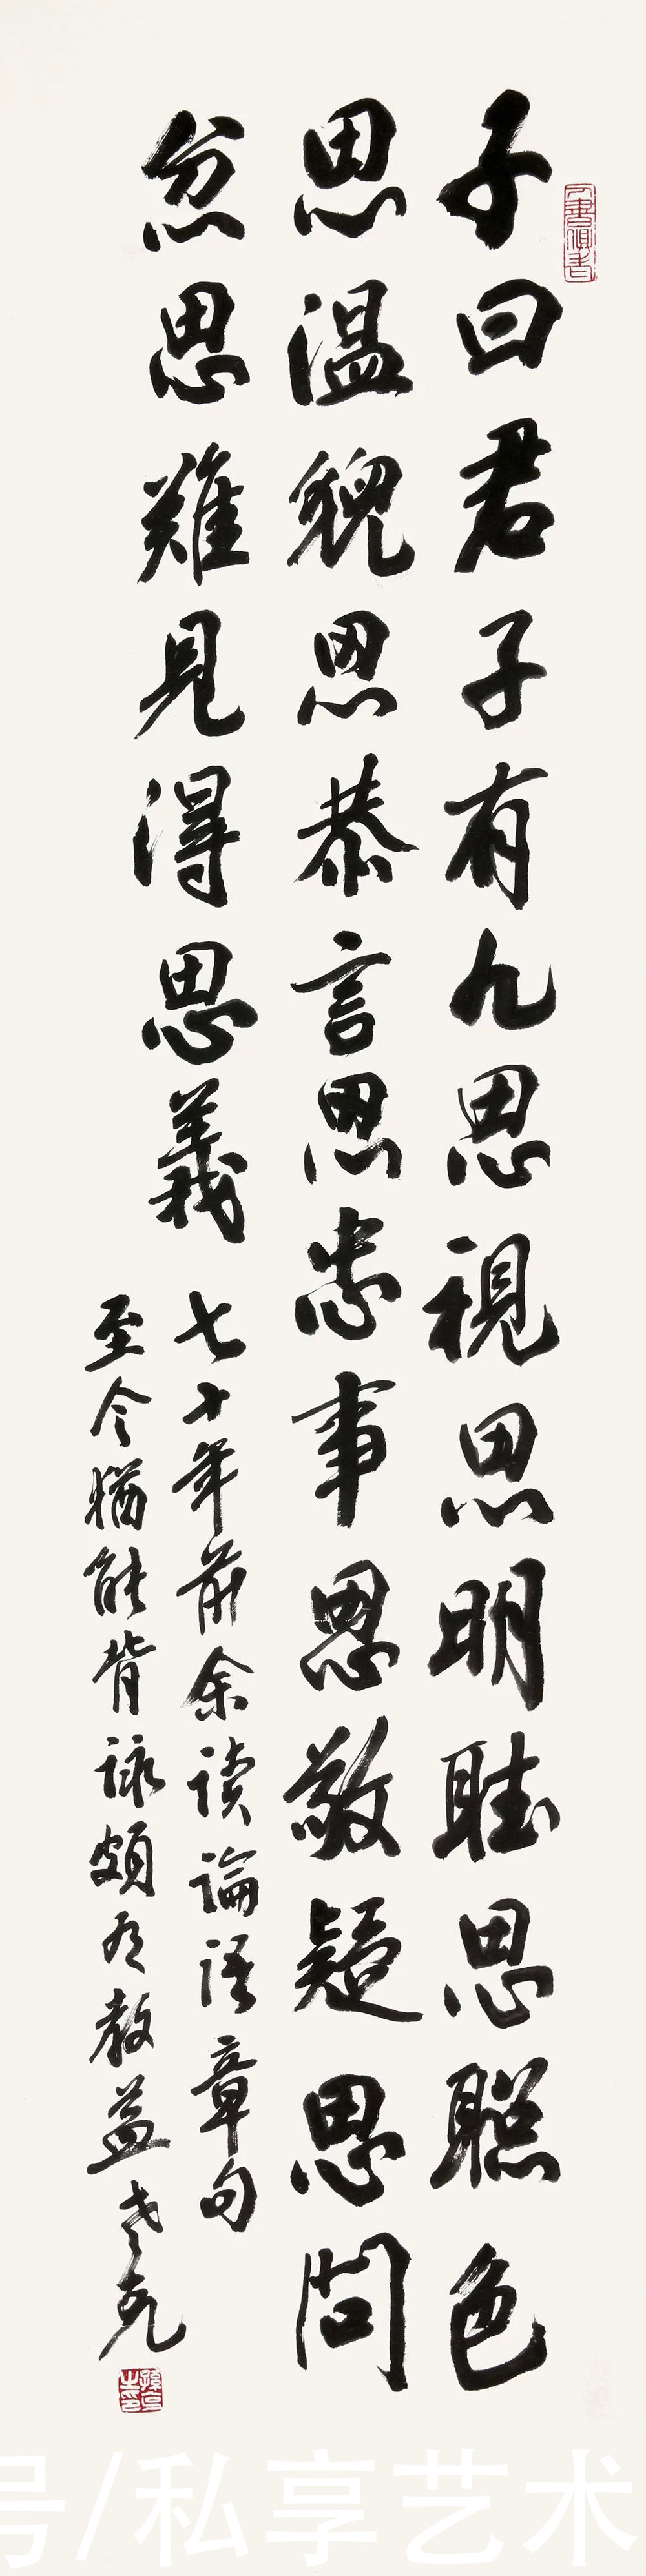 子曰君子有九思視思明聴思聡色
思温貌思恭言思忠事思敬疑思問
忿思難見得思義
七十年前余读論语章句
至今猶能背詠頗有教益老亢
号/私享艺术